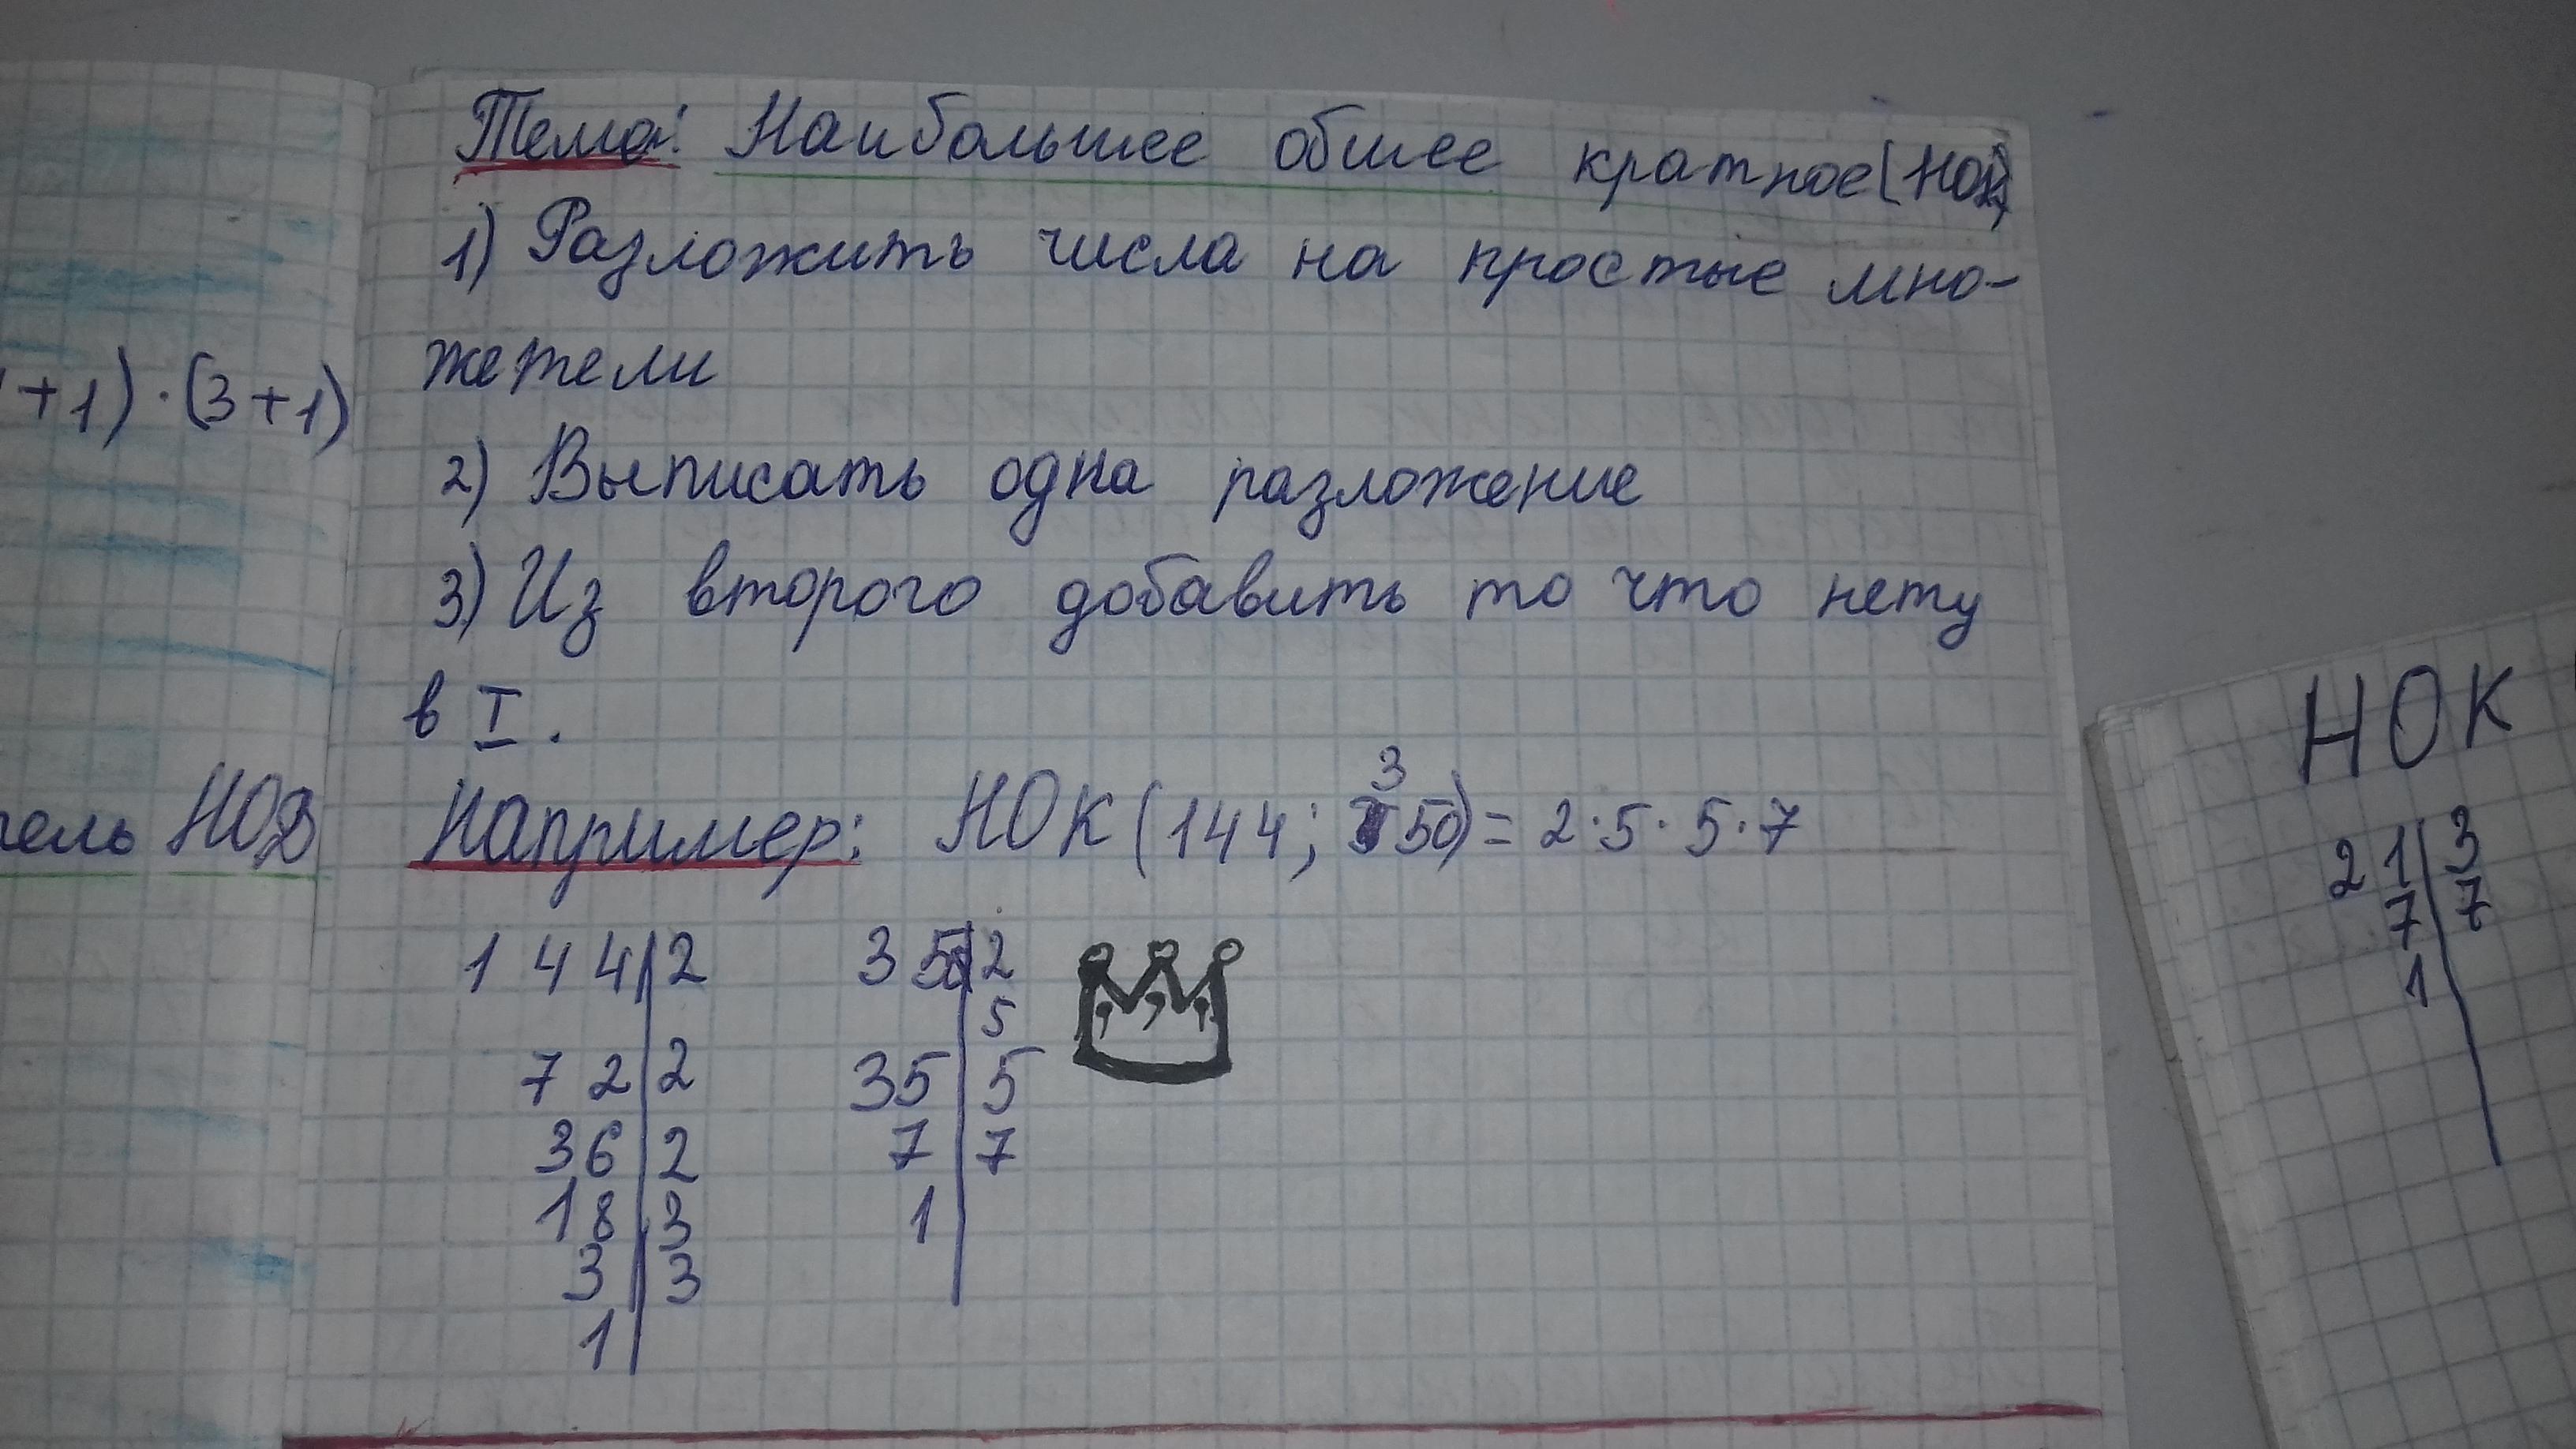 Тема: Наибольшее обшее кратное (НОК)
1) Разложить числа на простые мно-
жетели
2) Выписать одна разложение
3) Из второго добавить то что нету
в I.
+1)·(3+1)
тель НОД
Например: НОК (144; 350) = 2·5·5·7
144 2
72 2
36 2
18 3
3 3
1
350 2
5
35 5
7 7
1
НОК
21 3
7 7
1